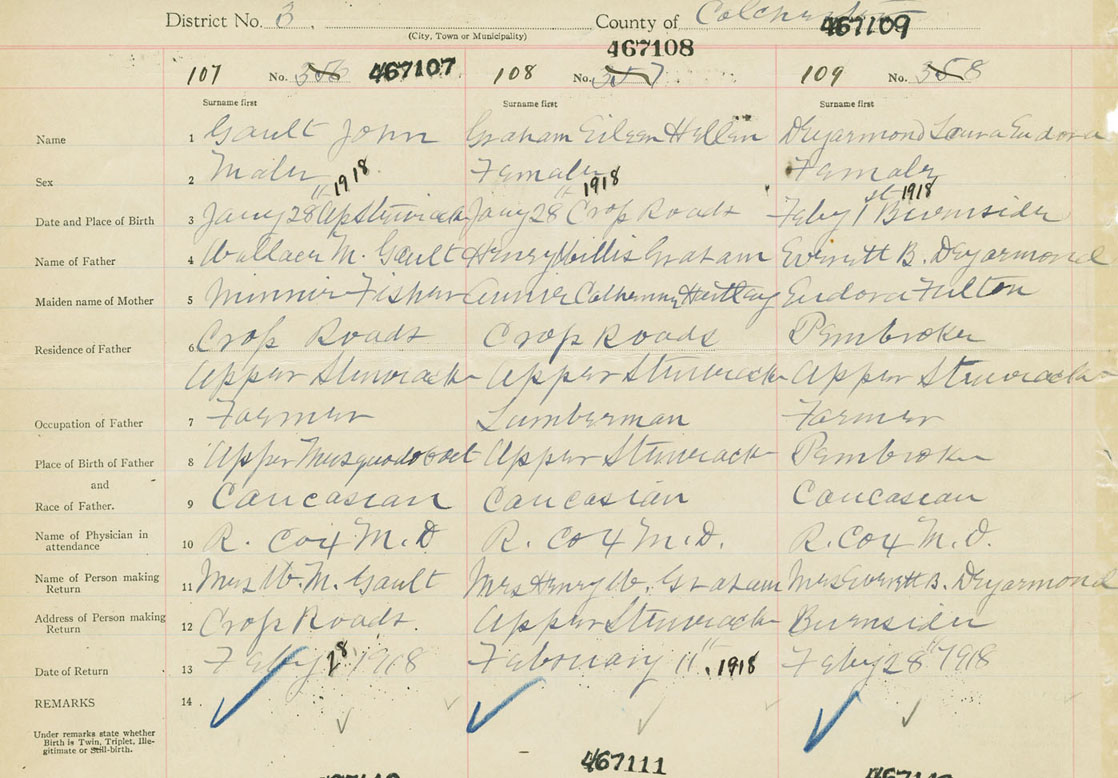 District No. 3 County of Colchester
(City, Town or Municipality)
467109
467108
107 No. 356 467107 108 No. 357 109 No. 358
Surname first Surname first Surname first
Name 1 Gault John Graham Eileen Hellen Deyarmond Laura Eudora
Sex 2 Male Female Female
1918 1918 1918
Date and Place of Birth 3 Jany 28" Up Stewiacke Jany 28" Crop Roads Feby 1st Burnside
Name of Father 4 Wallace M. Gault Henry Willis Graham Everett B. Deyarmond
Maiden name of Mother 5 Minnie Fisher Annie Catherine Hartley Eudora Fulton
Residence of Father 6 Crop Roads Crop Roads Pembroke
Upper Stewiacke Upper Stewiacke Upper Stewiacke
Occupation of Father 7 Farmer Lumberman Farmer
Place of Birth of Father 8 Upper Musquodoboit Upper Stewiacke Pembroke
and
Race of Father. 9 Caucasian Caucasian Caucasian
Name of Physician in attendance 10 R. Cox M.D R. Cox M.D. R. Cox M.D.
Name of Person making Return 11 Mrs W. M. Gault Mrs Henry W. Graham Mrs Everett B. Deyarmond
Address of Person making Return 12 Crop Roads. Upper Stewiacke Burnside
Date of Return 13 Feby 28 1918 February 11" 1918 Feby 28" 1918
REMARKS 14
Under remarks state whether
Birth is Twin, Triplet, Ille-
gitimate or Still-birth.
467111